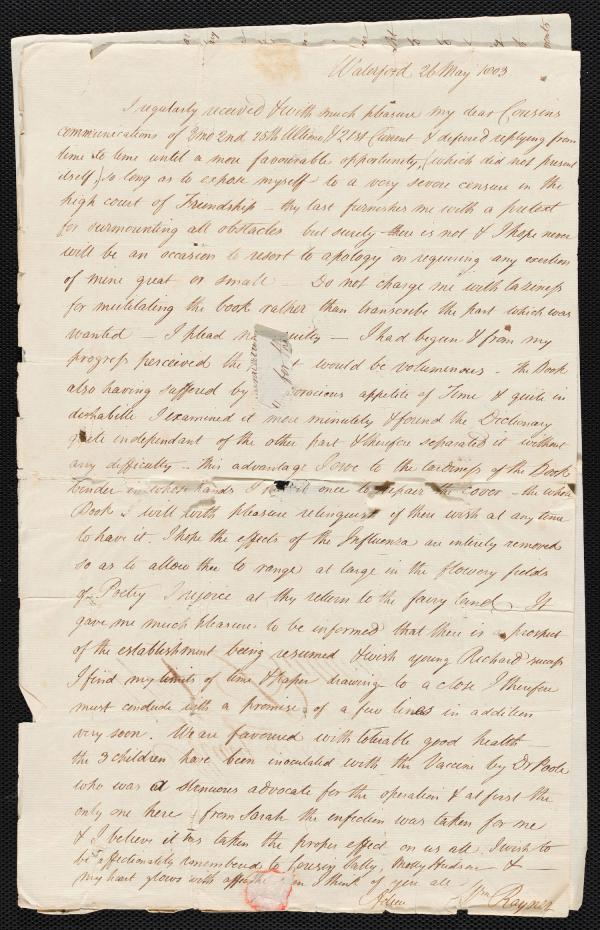 Waterford 26 May 1803
I regularly received & with much pleasure my dear Cousins
communications of 2nd 25th Ultimo & 21st Current & deferred replying from
time to time until a more favourable opportunity, (which did not present
itself,) so long as to expose myself to a very severe censure in the
high court of Friendship – thy last furnishes me with a pretext
for surmounting all obstacles but surely there is not & I hope never
will be an occasion to resort to apology on requiring any exertion
of mine great or small – Do not charge me with laziness
for mutilating the book rather than transcribe the part which was
wanted – I plead guilty – I had begun & from my
progress perceived the would be voluminous – the Book
also having suffered by voracious appetite of Time & quite in
deshabille I examined it more minutely & found the Dictionary
quite independant of the other part & therefore separated it without
any difficulty – this advantage I owe to the laziness of the Book
binder in whose hands I put it once to repair the cover – the whole
Book I will with pleasure relinquish if thou wish at any time
to have it. I hope the effects of the Influenza are entirely removed
so as to allow thee to range at large in the flowery fields
of Poetry I rejoice at thy return to the fairy land. It
gave me much pleasure to be informed that there is a prospect
of the establishment being resumed & wish young Richard success
I find my limits of time & paper drawing to a close I therefore
must conclude with a promise of a few lines in addition
very soon. We are favoured with tolerable good health
the 3 children have been inoculated with the Vaccine by Dr Poole
who was a stenuous advocate for the operation & at first the
only one here from Sarah the infection was taken for me
& I believe it has taken the proper effect on us all. I wish to
be affectionately remembered to Cousin Sally, Molly Hudson & –
my heart glows with I think of you all
Adieu Wm Rayner